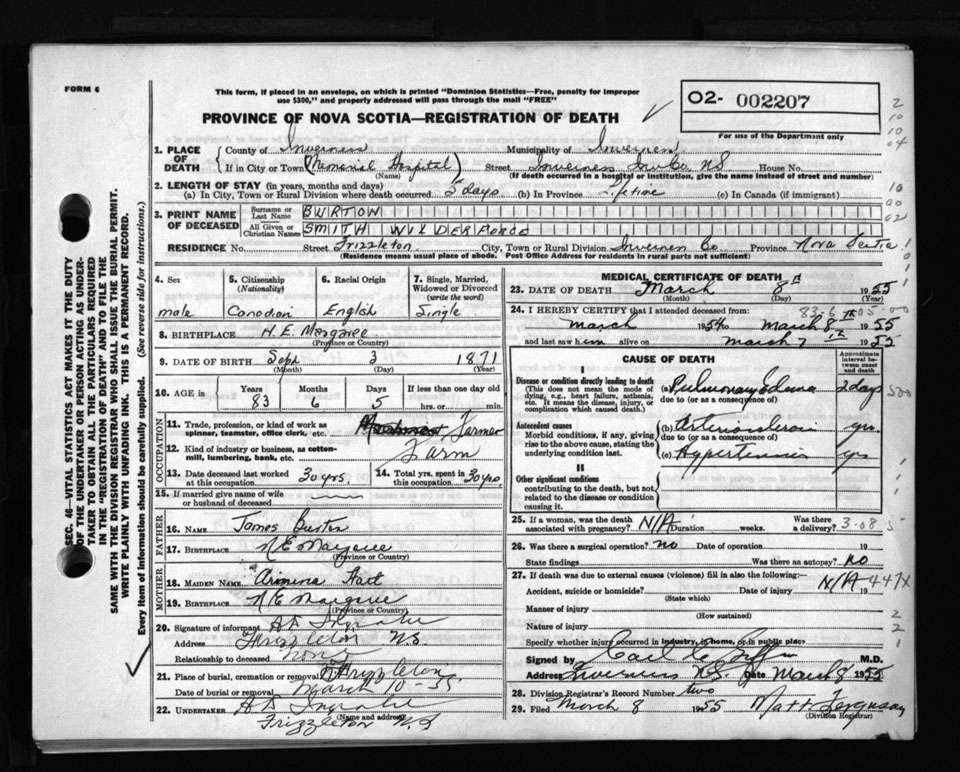 FORM 6
This form, if placed in an envelope, on which is printed "Dominion Statistics—Free, penalty for improper
use $300," and properly addressed will pass through the mail "FREE"
PROVINCE OF NOVA SCOTIA—REGISTRATION OF DEATH
O2- 002207
For use of the Department only
1. PLACE OF DEATH
County of Inverness Municipality of Inverness
If in City or Town Memorial Hospital Street Inverness Inv Co. NS House No.
(Name) (If death occurred in a hospital or institution, give the name instead of street and number)
2. LENGTH OF STAY (in years, months and days)
(a) In City, Town or Rural Division where death occurred 2 days (b) In Province Lifetime (c) In Canada (if immigrant)
3. PRINT NAME OF DECEASED
Surname or Last Name BURTON
All Given or Christian Names SMITH WILDERFORCE
RESIDENCE No. Street Frizzleton City, Town or Rural Division Inverness Co. Province Nova Scotia
(Residence means usual place of abode. Post Office Address for residents in rural parts not sufficient)
4. Sex
male
5. Citizenship (Nationality)
Canadian
6. Racial Origin
English
7. Single, Married, Widowed or Divorced (write the word)
Single
8. BIRTHPLACE N.E. Margaree
(Province or Country)
9. DATE OF BIRTH Sept 3 1871
(Month) (Day) (Year)
10. AGE in Years Months Days If less than one day old
83 6 5 hrs. or min.
OCCUPATION
11. Trade, profession, or kind of work as spinner, teamster, office clerk, etc. Farmer
12. Kind of industry or business, as cotton-mill, lumbering, bank, etc. Farm
13. Date deceased last worked at this occupation 30 yrs.
14. Total yrs. spent in this occupation 30 yrs
15. If married give name of wife or husband of deceased
FATHER
16. NAME James Burton
17. BIRTHPLACE N E Margaree
(Province or Country)
MOTHER
18. MAIDEN NAME Armina Hart
19. BIRTHPLACE N E Margaree
(Province or Country)
20. Signature of informant A D Ingraham
Address Frizzleton N.S.
Relationship to deceased None
21. Place of burial, cremation or removal Frizzleton
Date of burial or removal March 10 - 55.
22. UNDERTAKER A D Ingraham
(Name and address)
Frizzleton N.S
MEDICAL CERTIFICATE OF DEATH
23. DATE OF DEATH March 8th 1955
(Month) (Day) (Year)
24. I HEREBY CERTIFY that I attended deceased from:
march 1954 to march 8th 1955
and last saw him alive on march 7th 1955
CAUSE OF DEATH
Approximate interval between onset and death
I
Disease or condition directly leading to death
(This does not mean the mode of dying, e.g., heart failure, asthenia, etc. It means the disease, injury, or complication which caused death.)
(a) Pulmonary Edema 2 days
due to (or as a consequence of)
Antecedent causes
Morbid conditions, if any, giving rise to the above cause, stating the underlying condition last.
(b) Arteriosclerosis yrs.
due to (or as a consequence of)
(c) Hypertension yrs
II
Other significant conditions
contributing to the death, but not related to the disease or condition causing it.
25. If a woman, was the death associated with pregnancy? N/A Duration weeks. Was there a delivery?
3-08
26. Was there a surgical operation? no Date of operation 19
State findings Was there an autopsy? no
27. If death was due to external causes (violence) fill in also the following:—
Accident, suicide or homicide? Date of injury N/A 19
447X
(State which)
Manner of injury
(How sustained)
Nature of injury
Specify whether injury occurred in industry, in home, or in public place
Signed by M.D.
Address Inverness N.S. Date March 8 1955
28. Division Registrar's Record Number two
29. Filed March 8 1955 Matt Ferguson
(Division Registrar)
SEC. 46—VITAL STATISTICS ACT MAKES IT THE DUTY
OF THE UNDERTAKER OR PERSON ACTING AS UNDER-
TAKER TO OBTAIN ALL THE PARTICULARS REQUIRED
IN THE "REGISTRATION OF DEATH" AND TO FILE THE
SAME WITH THE DIVISION REGISTRAR WHO SHALL ISSUE THE BURIAL PERMIT.
WRITE PLAINLY WITH UNFADING INK. THIS IS A PERMANENT RECORD.
Every item of information should be carefully supplied. (See reverse side for instructions.)